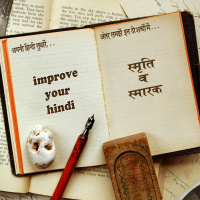 अपनी हिंदी सुधारें...
improve
your
hindi
अंतर समझें इन दो शब्दों में...
स्मृति
व
स्मारक